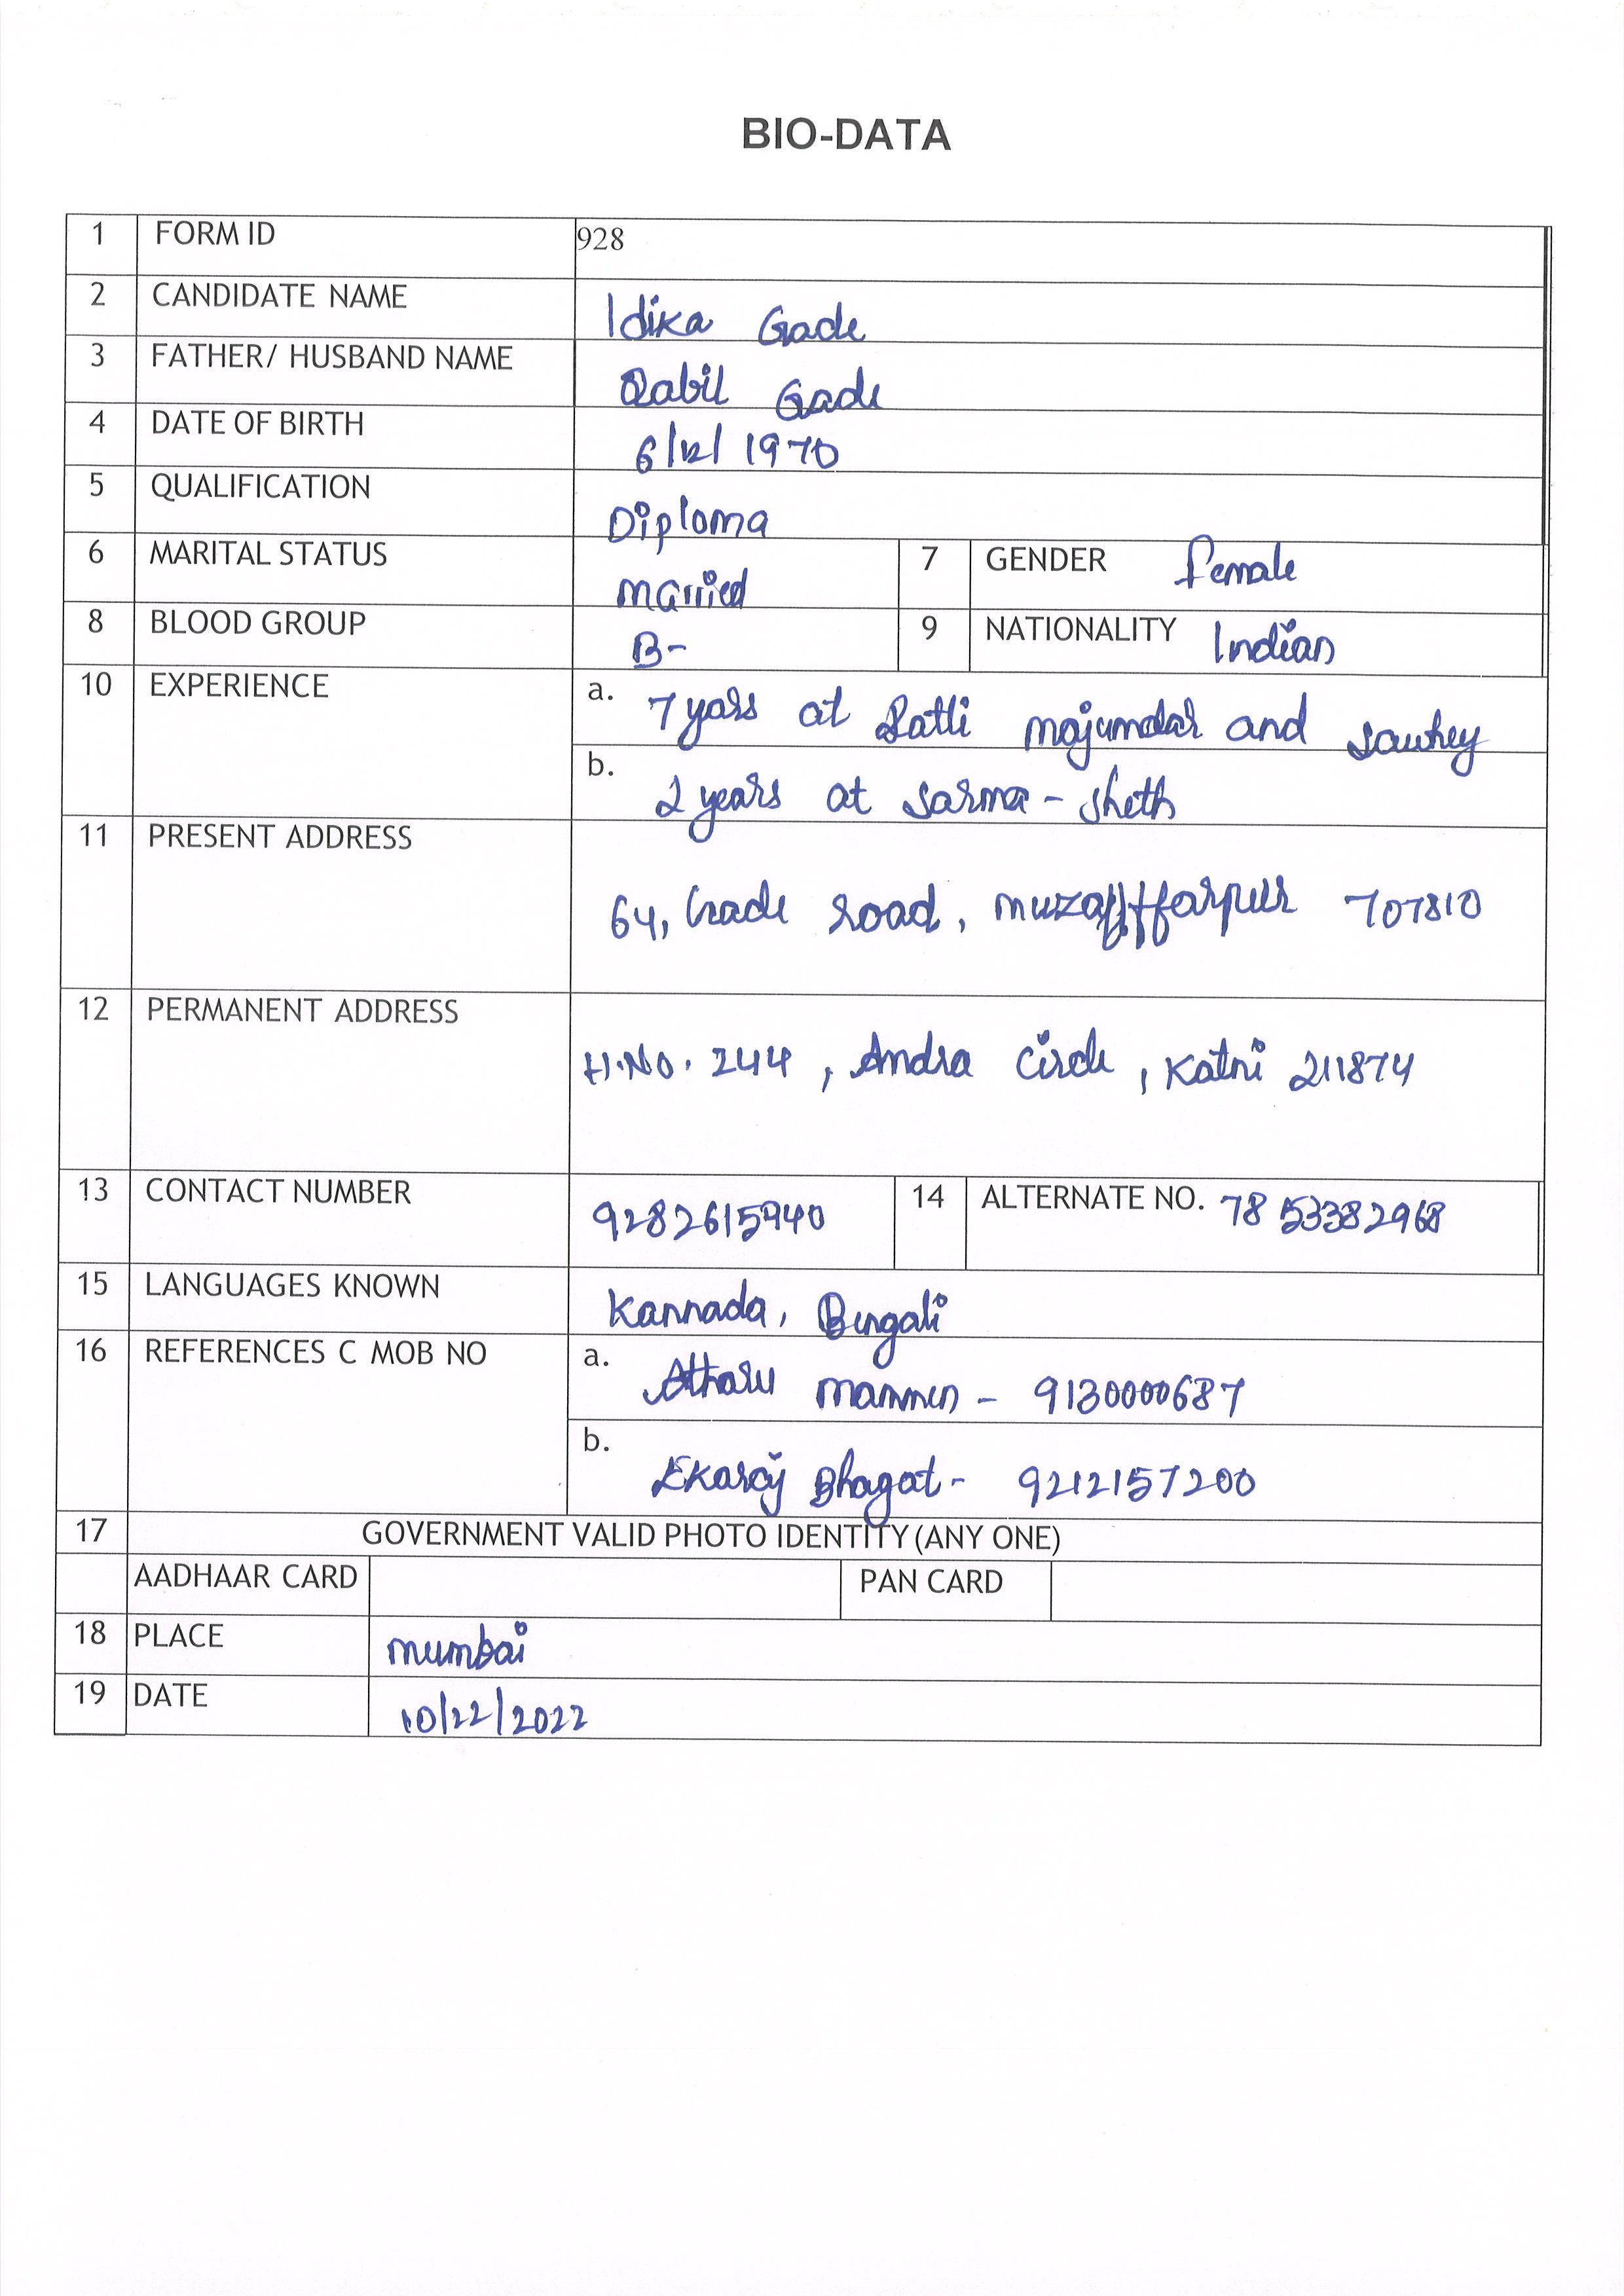 BIO-DATA
1 FORM ID 928
2 CANDIDATE NAME Idika Gade
3 FATHER/ HUSBAND NAME Qabil Gade
4 DATE OF BIRTH 6/12/1970
5 QUALIFICATION Diploma
6 MARITAL STATUS Married 7 GENDER Female
8 BLOOD GROUP B- 9 NATIONALITY Indian
10 EXPERIENCE a. 7 years at Majumdar and Sawhey
b. 2 years at Sarma - Sheth
11 PRESENT ADDRESS 64, Gade Road, Muzaffarpur 707810
12 PERMANENT ADDRESS H.No. 244, Andra Circle, Katni 211874
13 CONTACT NUMBER 9282615940 14 ALTERNATE NO. 7853382968
15 LANGUAGES KNOWN Kannada, Bengali
16 REFERENCES C MOB NO a. Mammen - 9130000687
b. Ekaraj Bhagat - 9212157200
17 GOVERNMENT VALID PHOTO IDENTITY (ANY ONE)
AADHAAR CARD PAN CARD
18 PLACE Mumbai
19 DATE 10/22/2022